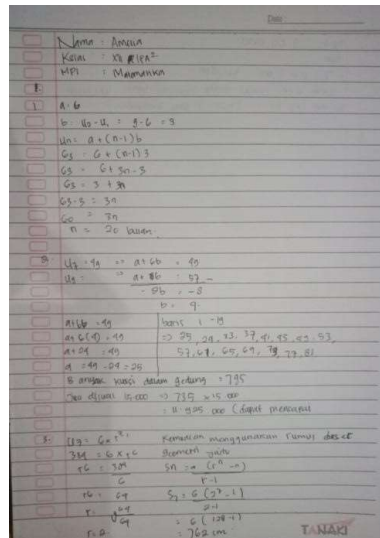 Nama : Amelia
Kelas : XII IPA²
MPl : Matematika
1 a = 6
b = U2 - U1 = 9 - 6 = 3
Un = a + (n-1) b
63 = 6 + (n-1) 3
63 = 6 + 3n - 3
63 = 3 + 3n
63 - 3 = 3n
60 = 3n
n = 20 bulan
2 U7 = 49 => a + 6b = 49
U9 = a + 8b = 57 -
-2b = -8
b = 4
a + 6b = 49
a + 6(4) = 49
a + 24 = 49
a = 49 - 24 = 25
baris 1 - 15
=> 25, 29, 33, 37, 41, 45, 49, 53,
57, 61, 65, 69, 73, 77, 81
banyak kursi dalam gedung = 795
15.000 => 795 x 15 000
= 11.925 000 (dapat mencapai
3. 384 = 6 x r6
r6 = 384
6
r6 = 64
r = 2
Kemudian menggunakan rumus deret
geometri yaitu
Sn = a (rⁿ - 1)
r - 1
S7 = 6 (2⁷ - 1)
2-1
= 6 (128-1)
= 762 cm
TANAKI